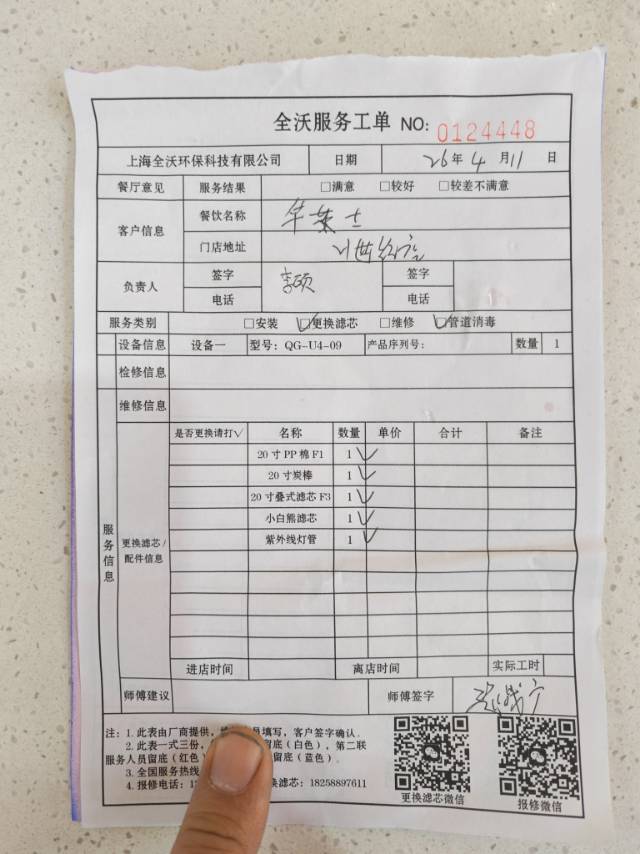 全沃服务工单 NO: 0124448
上海全沃环保科技有限公司 日期 26年 4 月 11 日
餐厅意见 服务结果 □满意 □较好 □较差不满意
客户信息 餐饮名称 华莱士
门店地址
负责人 签字 签字
电话 电话
服务类别 □安装 ☑更换滤芯 □维修 ☑管道消毒
设备信息 设备一 型号: QG-U4-09 产品序列号: 数量 1
检修信息
维修信息
服务信息
更换滤芯/配件信息
是否更换请打√ 名称 数量 单价 合计 备注
20寸PP棉F1 1 √
20寸炭棒 1 √
20寸叠式滤芯F3 1 √
小白熊滤芯 1 √
紫外线灯管 1 √
进店时间 离店时间 实际工时
师傅建议 师傅签字
注: 1. 此表由厂商提供, 填写, 客户签字确认.
2. 此表一式三份, 留底(白色), 第二联
服务人员留底(红色) 留底(蓝色).
3. 全国服务热线
4. 报修电话: 换滤芯: 18258897611
更换滤芯微信 报修微信